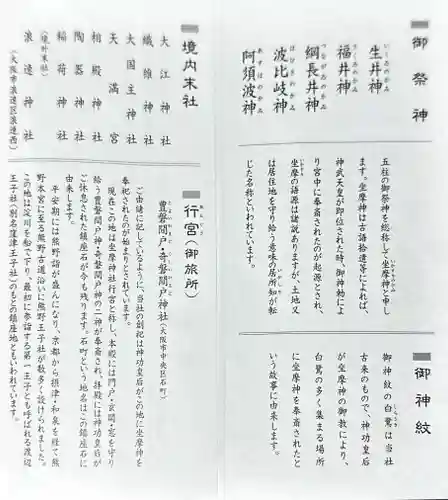 御祭神
生井神
いくゐのかみ
福井神
さくゐのかみ
綱長井神
つながゐのかみ
波比岐神
はひきのかみ
阿須波神
あすはのかみ
五柱の御祭神を総称して坐摩神と申し
ます。坐摩神は古語拾遺等によれば、
神武天皇が即位された時、御神勅によ
り宮中に奉斎されたのが起源とされ、
坐摩の語源は諸説ありますが、土地又
は居住地を守り給う意味の居所知が転
じた名称といわれています。
御神紋
御神紋の白鷺は当社
古来のもので、神功皇后
が坐摩神の御教により、
白鷺の多く集まる場所
に坐摩神を奉斎されたと
いう故事に由来します。
境内末社
大江神社
繊維神社
大国主神社
天満宮
相殿神社
陶器神社
稲荷神社
(境外末社)
浪速神社
(大阪市浪速区浪速西)
行宮(御旅所)
豊磐間戸・奇磐間戸神社(大阪市中央区石町)
ご由緒に記しているように、当社の創祀は神功皇后がこの地に坐摩神を
奉祀されたのが始まりとされています。
現在、この地は坐摩神社行宮と称し、本殿には門戸・玄関・窓を守り
給う豊磐間戸神・奇磐間戸神の二神が奉斎され、拝殿には神功皇后が
ご休息された鎮座石が今も残ります。石町という地名はこの鎮座石に
由来します。
平安期には熊野詣が盛んになり、京都から摂津・和泉を経て熊
野本宮に至る熊野古道沿いに熊野王子社が数多く設けられました。
この地は淀川を船で下り、最初に参詣する第一王子とも呼ばれる渡辺
王子社(別名窪津王子社)のもとの鎮座地ともいわれています。